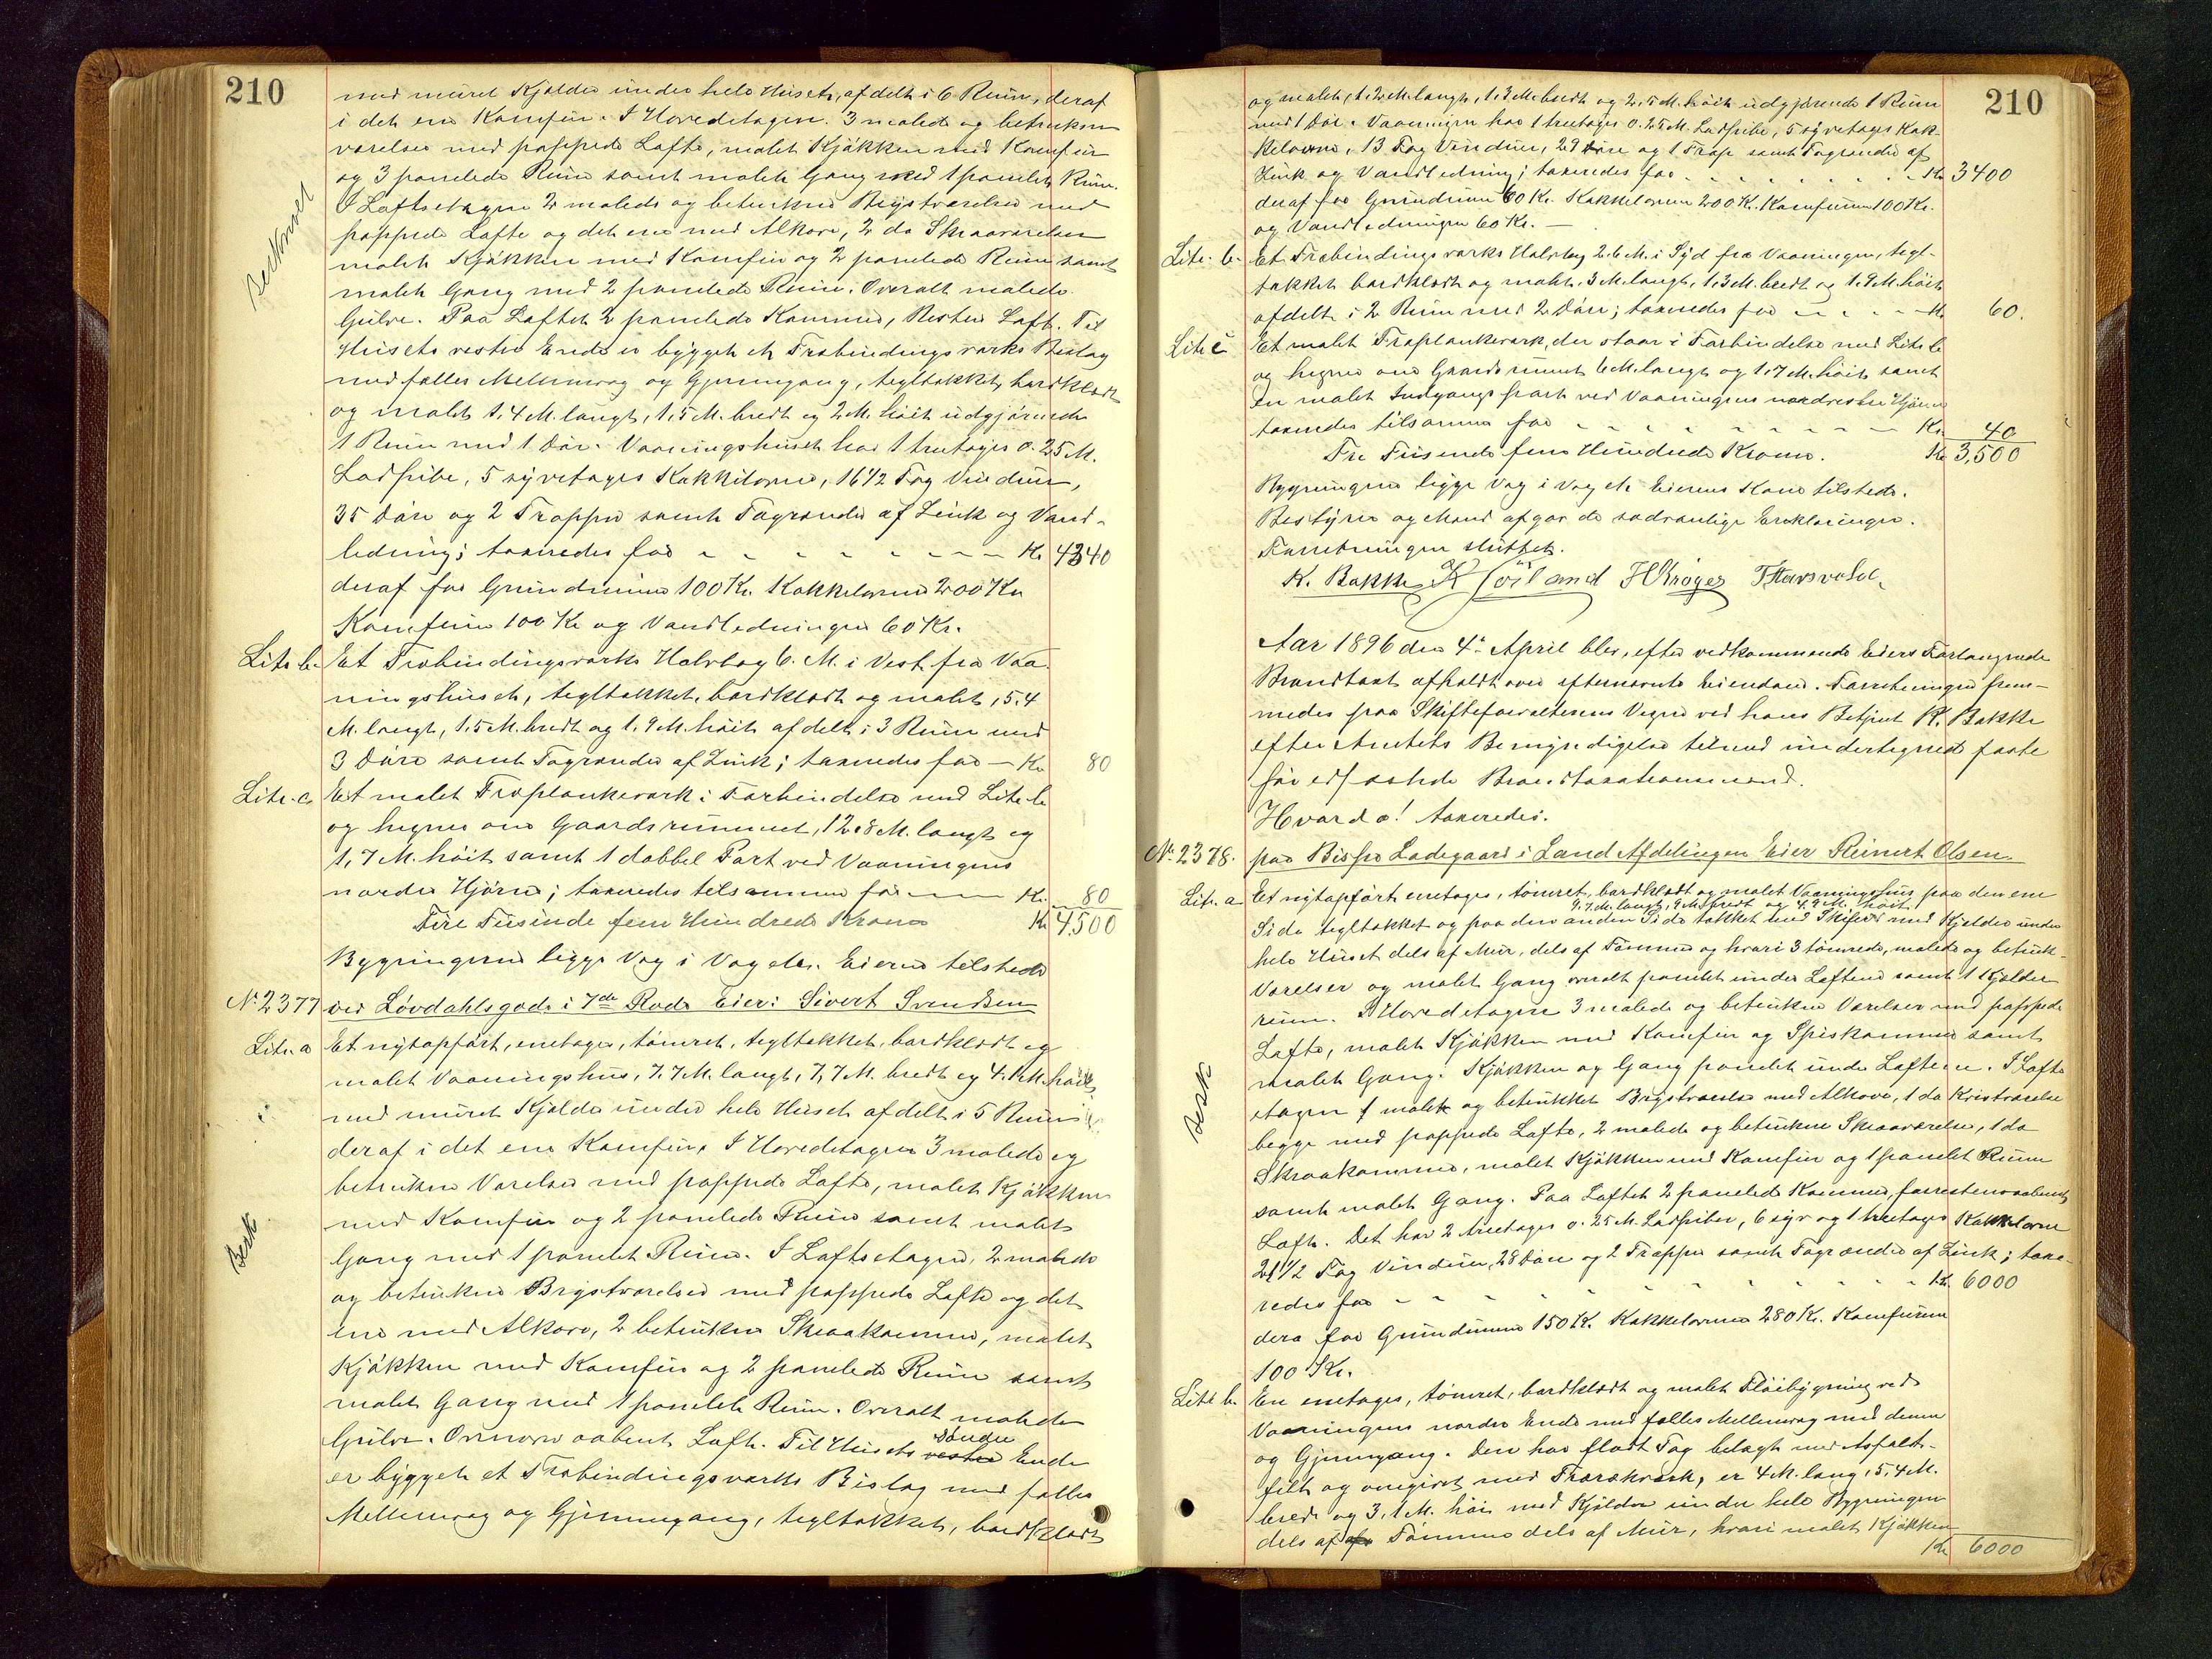 210
med muret Kjelder under hele Huset, afdelt i 6 Rum, deraf
i det ene Komfur. I Hovedetagen 3 malede og betrukne
værelser med pappede Lofte, malet Kjøkken med Komfur
og 3 panelede Rum samt malet Gang med 1 panelet Rum.
I Loftsetagen 2 malede og betrukne Brystværelser med
pappede Lofte og det ene med Alkove, 2 do Skraaværelser
malet Kjøkken med Komfur og 2 panelede Rum samt
malet Gang med 2 panelede Rum. Overalt malede
Gulve. Paa Loftet 2 panelede Kammer, Resten Loft. Til
Husets vestre Ende er bygget et Træbindingsværks Bislag
med fælles Mellemvæg og Gjennemgang, tegltækket, bordklædt
og malet 1,4 M. langt, 1,5 M. bredt og 2 M. høit udgjørende
1 Rum med 1 Dør. Vaaningshuset har 1 treetages 0.25 M.
Ladpibe, 5 syvetages Kakkelovne, 16 1/2 Fag Vinduer,
35 Døre og 2 Trapper samt Tagrender af Zink og Vand-
ledning; taxeredes for - - - - Kr 4340
deraf for Grundmuren 100 Kr. Kakkelovne 200 Kr
Komfurer 100 Kr og Vandledningen 60 Kr.
Litr b. Et Træbindingsværks Halvtag 6. M. i Vest fra Vaa-
ningshuset, tegltækket, bordklædt og malet, 5.4
M. langt, 1.5 M. bredt og 1.9 M. høit afdelt i 3 Rum med
3 Døre samt Tagrender af Zink; taxeredes for - Kr 80
Litr. c. Et malet Træplankeværk i Forbindelse med Litr b
og hegner om Gaardsrummet, 12.8 M. langt og
1,7 M. høit samt 1 dobbel Port ved Vaaningens
nordre Hjørne; taxeredes tilsammen for - Kr. 80
Fire Tusinde fem Hundrede Kroner Kr 4,500
Bygningerne ligge Væg i Væg etc. Eieren tilstede
No. 2377 ved Løvdahlsgade i 7de Rode Eier: Sivert Svendsen
Litr. a Et nyopført, enetages, tømret, tegltækket, bordklædt og
malet Vaaningshus, 7.7 M. langt, 7,7 M. bredt og 4. M. høit
med muret Kjelder under hele Huset afdelt i 5 Rum
deraf i det ene Komfur. I Hovedetagen 3 malede og
betrukne Værelser med pappede Lofte, malet Kjøkken
med Komfur og 2 panelede Rum samt malet
Gang med 1 panelet Rum. I Loftsetagen, 2 malede
og betrukne Brystværelser med pappede Lofte og det
ene med Alkove, 2 betrukne Skraakammer, malet
Kjøkken med Komfur og 2 panelede Rum samt
malet Gang med 1 panelet Rum. Overalt malede
Gulve. Ovenover aabent Loft. Til Husets vestre søndre Ende
er bygget et Træbindingsværks Bislag med fælles
Mellemvæg og Gjennemgang, tegltækket, bordklædt
210
og malet, 1,2 M. langt, 1,3 M. bredt og 2,5 M. høit udgjørende 1 Rum
med 1 Dør. Vaaningen har 1 treetages 0.25 M. Ladpibe, 5 syvetages Kak-
kelovne, 13 Fag Vinduer, 29 Døre og 1 Trap samt Tagrender af
Zink og Vandledning; taxeredes for - - - Kr 3400
deraf for Grundmuren 60 Kr. Kakkelovnene 200 Kr. Komfurene 100 Kr.
og Vandledningen 60 Kr. -
Litr. b. Et Træbindingsværks Halvtag 2.6 M. i Syd fra Vaaningen, tegl-
tækket bordklædt og malet, 3 M. langt, 1,3 M. bredt og 1.9 M. høit
afdelt i 2 Rum med 2 Døre; taxeredes for - - - Kr. 60.
Litr c Et malet Træplankeværk, der staar i Forbindelse med Litr b
og hegner om Gaardsrummet 6 M. langt og 1.7 M. høit samt
en malet Indgangsport ved Vaaningens nordvestre Hjørne
taxeredes tilsammen for - - - Kr. 40
Tre Tusinde fem Hundrede Kroner. Kr 3,500
Bygningerne ligge Væg i Væg etc Eierens Kone tilstede.
Bestyrer og Mænd afgav de sædvanlige Erklæringer.
Forretningen sluttet.
K. Bakke K Soiland H Krøger T Harsvold
Aar 1896 den 4de April blev, efter vedkommende Eiers Forlangende
Brandtaxt afholdt over efternævnte Eiendom. Forretningen frem-
medes paa Skifteforvalterens Vegne ved hans Betjent K. Bakke
efter Amtets Bemyndigelse tilmed undertegnede faste
før edfæstede Brandtaxationsmænd.
Hvorda! taxeredes.
No. 2378. paa Bispe Ladegaard i Land Afdelingen Eier Reinert Olsen.
Litr. a Et nyopført enetages, tømret, bordklædt og malet Vaaningshus paa den ene
9.7 M. langt, 9 M. bredt og 4.9 M. høit
Side tegltækket og paa den anden Side tækket med Skifer med Kjelder under
hele Huset dels af Mur, dels af Tømmer og hvori 3 tømrede, malede og betruk-
Værelser og malet Gang overalt panelet under Loftene samt 1 Kjelder
rum. I Hovedetagen 3 malede og betrukne Værelser med pappede
Lofte, malet Kjøkken med Komfur og Spiskammer samt
malet Gang. Kjøkken og Gang panelet under Loftene. I Lofts
etagen 1 malet og betrukket Brystværelse med Alkove, 1 do Kvistværelse
begge med pappede Lofte, 2 malede og betrukne Skraaværelser, 1 do
Skraakammer, malet Kjøkken med Komfur og 1 panelet Rum
samt malet Gang. Paa Loftet 2 panelede Kammer, forresten aabent
Loft. Det har 2 treetages 0.25 M. Ladpiber, 6 syv og 1 treetages Kakkelovne
21 1/2 Fag Vinduer, 28 Døre og 2 Trapper samt Tagrender af Zink; taxe-
redes for - - - Kr. 6000
dera for Grundmuren 150 Kr. Kakkelovnene 280 Kr. Komfurene
100 Kr.
Litr b. En enetages, tømret, bordklædt og malet Fløibygning ved
Vaaningens nordre Ende med fælles Mellemvæg med denne
og Gjennemgang. Den har fladt Tag belagt med Asfalt-
filt og omgivet med Trærækværk, er 4 M. lang, 5,4 M.
bred og 3,1 M. høi med Kjelder under hele Bygningen
dels af Tømmer dels af Mur, hvori malet Kjøkken
Kr 6000
Beskrevet
Besk
Besk